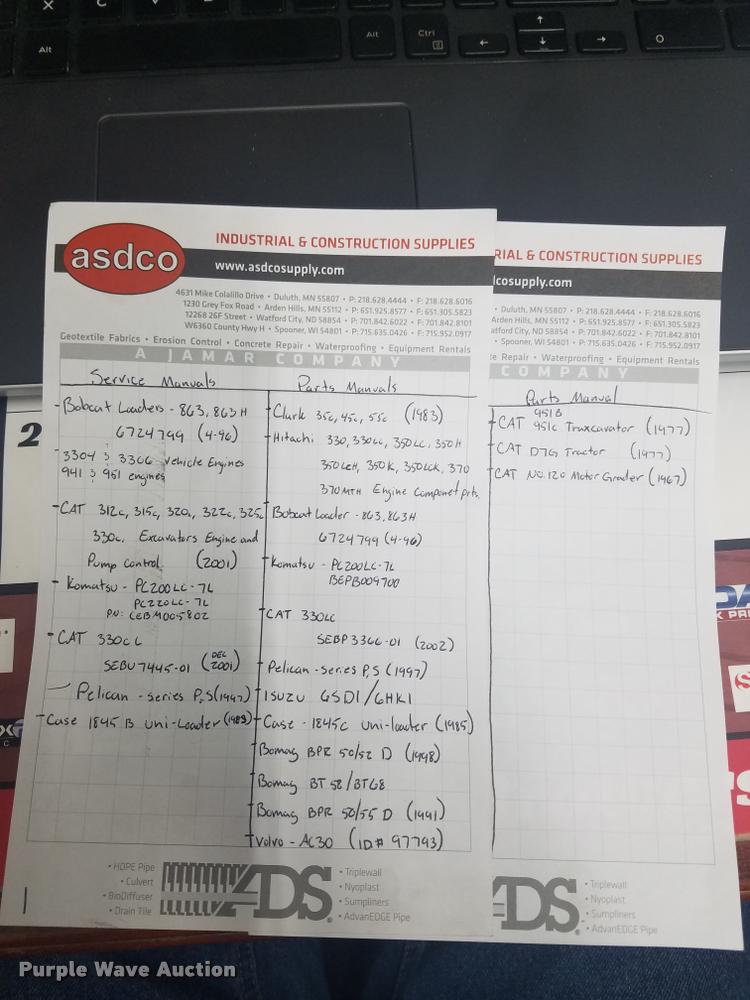 Alt
Alt
Ctrl
asdco
INDUSTRIAL & CONSTRUCTION SUPPLIES
www.asdcosupply.com
4631 Mike Colalillo Drive • Duluth, MN 55807 • P: 218.628.4444 • F: 218.628.6016
1230 Grey Fox Road • Arden Hills, MN 55112 • P: 651.925.8577 • F: 651.305.5823
12268 26F Street • Watford City, ND 58854 • P: 701.842.6022 • F: 701.842.8101
W6360 County Hwy H • Spooner, WI 54801 • P: 715.635.0426 • F: 715.952.0917
Geotextile Fabrics • Erosion Control • Concrete Repair • Waterproofing • Equipment Rentals
A JAMAR COMPANY
Service Manuals
- Bobcat Loaders - 863, 863H
6724799 (4-96)
- 3304 & 3306 Vehicle Engines
941 & 951 engines
- CAT 312c, 315c, 320c, 322c, 325c
330c. Excavators Engine and
Pump control. (2001)
- Komatsu - PC200LC-7L
PC220LC-7L
PN: CEBM005802
- CAT 330CL
SEBU7445-01 (DEC 2001)
- Pelican - series P,S (1997)
- Case 1845 B Uni-Loader (1985)
Parts Manuals
- Clark 35c, 45c, 55c (1983)
- Hitachi 330, 330LC, 350LC, 350H
350LCH, 350K, 350LCK, 370
370MTH Engine Componet prts.
- Bobcat Loader - 863, 863H
6724799 (4-96)
- Komatsu - PC200LC-7L
BEPB009700
- CAT 330LC
SEBP3366-01 (2002)
- Pelican - series P,S (1997)
- ISUZU 6SD1/6HK1
- Case - 1845c uni-loader (1985)
- Bomag BPR 50/52 D (1998)
- Bomag BT 58/BT68
- Bomag BPR 50/55 D (1991)
- Volvo - AC30 (ID# 97793)
• HDPE Pipe
• Culvert
• BioDiffuser
• Drain Tile
ADS
• Triplewall
• Nyoplast
• Sumpliners
• AdvanEDGE Pipe
RIAL & CONSTRUCTION SUPPLIES
dcosupply.com
• Duluth, MN 55807 • P: 218.628.4444 • F: 218.628.6016
Arden Hills, MN 55112 • P: 651.925.8577 • F: 651.305.5823
atford City, ND 58854 • P: 701.842.6022 • F: 701.842.8101
• Spooner, WI 54801 • P: 715.635.0426 • F: 715.952.0917
te Repair • Waterproofing • Equipment Rentals
COMPANY
Parts Manual
951B
- CAT 951c Traxcavator (1977)
- CAT D7G Tractor (1977)
- CAT No.120 Motor Grader (1967)
ADS
• Triplewall
• Nyoplast
• Sumpliners
• AdvanEDGE Pipe
2
Purple Wave Auction